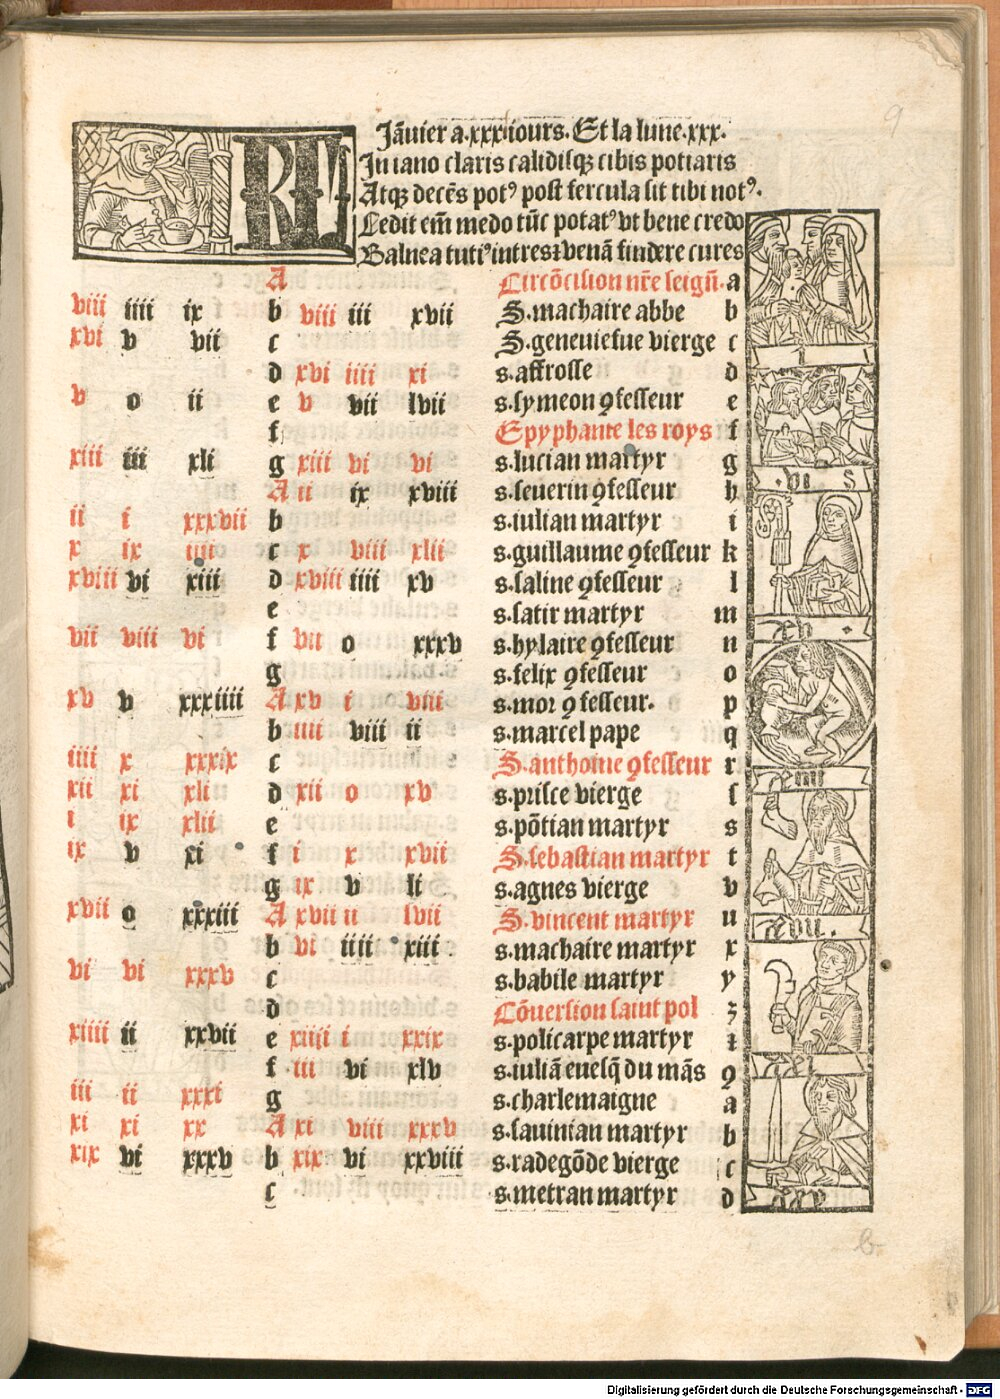 9
KL
Jāuier a .xxxi iours. Et la lune .xxx.
In iano claris calidisqȝ cibis potiaris
Atqȝ decēs potꝰ post fercula sit tibi notꝰ.
Ledit em̄ medo tūc potatꝰ vt bene credo
Balnea tutiꝰ intres ⁊ venā findere cures
A Circōcision nr̄e seigñ. a
viii iiii ix b viii iii xvii S. machaire abbe b
xvi v vii c S. geneuiefue vierge c
d xvi iiii xi s. affrosse d
v o ii e v vii lvii s. symeon ꝯfesseur e
f Epyphanie les roys f
xiii iii xli g xiii vi vi s. lucian martyr g
A ii ix xviii s. seuerin ꝯfesseur h
ii i xxxvii b s. iulian martyr i
x ix iiii c x viii xlii s. guillaume ꝯfesseur k
xviii vi xiii d xviii iiii xv s. saline ꝯfesseur l
e s. satir martyr m
vii viii vi f vii o xxxv s. hylaire ꝯfesseur n
g s. felix ꝯfesseur o
xv v xxxiiii A xv i viii s. mor ꝯfesseur. p
b iiii viii ii s. marcel pape q
iiii x xxxix c S. anthoine ꝯfesseur r
xii xi xli d xii o xv s. prisce vierge ſ
i ix xlii e s. pōtian martyr s
ix v xi f i x xvii S. sebastian martyr t
g ix v li s. agnes vierge v
xvii o xxxiii A xvii ii lvii S. vincent martyr u
b vi iiii xiii. s. machaire martyr x
vi vi xxxv c s. babile martyr y
d Cōuersion saint pol z
xiiii ii xxvii e xiiii i xxix s. policarpe martyr ⁊
f iii vi xlv s. iuliā euesq̄ du mās ꝯ
iii ii xxxi g s. charlemaigne a
xi xi xx A xi viii xxxv s. sauinian martyr b
xix vi xxxv b xix vi xxviii s. radegōde vierge c
c s. metran martyr d
i
.vi s
xvii.
xxv
b
Digitalisierung gefördert durch die Deutsche Forschungsgemeinschaft - DFG